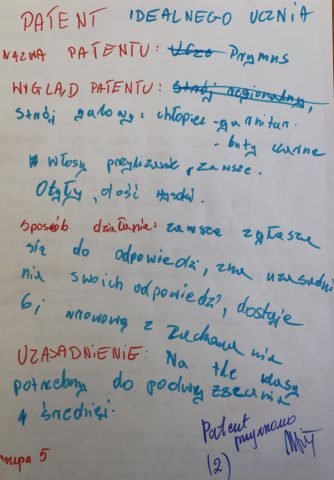 PATENT IDEALNEGO UCZNIA
NAZWA PATENTU: Prymus
WYGLĄD PATENTU: Strój regionalny,
Strój galowy: chłopiec - garnitur.
- buty czarne
włosy przylizane, zawsze.
Otyły, dość wysoki.
Sposób działania: zawsze zgłasza
się do odpowiedzi, zna uzasadnie
nia swoich odpowiedzi, dostaje
6, wzorową z zachowania
UZASADNIENIE: Na tle klasy
potrzebny do podwyższenia
średniej.
Patent
przyznano
(2)
grupa 5